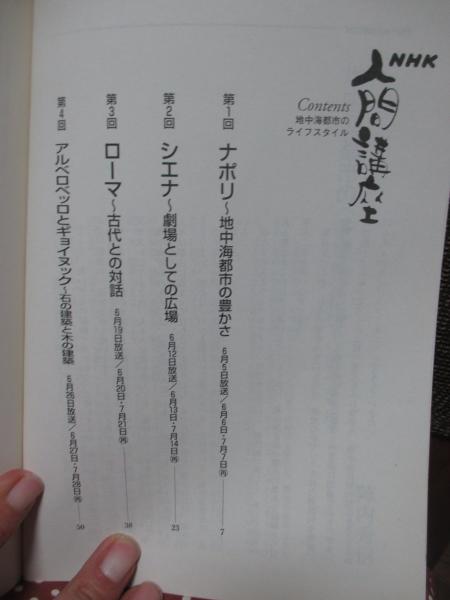 NHK
人間講座
Contents
地中海都市の
ライフスタイル
第1回 ナポリ〜地中海都市の豊かさ 6月5日放送/6月6日・7月7日�
第2回 シエナ〜劇場としての広場 6月12日放送/6月13日・7月14日�
第3回 ローマ〜古代との対話 6月19日放送/6月20日・7月21日�
第4回 アルベロベッロとギョイヌック〜石の建築と木の建築 6月26日放送/6月27日・7月28日�
7
23
38
50